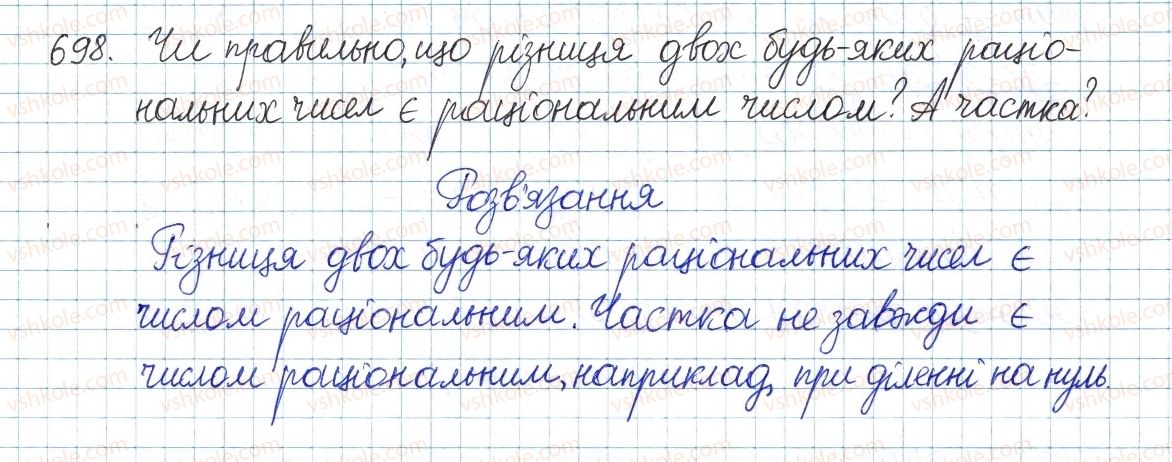 698. Чи правильно, що різниця двох будь-яких раціо-
нальних чисел є раціональним числом? А частка?
Розв'язання
Різниця двох будь-яких раціональних чисел є
числом раціональним. Частка не завжди є
числом раціональним, наприклад, при діленні на нуль.